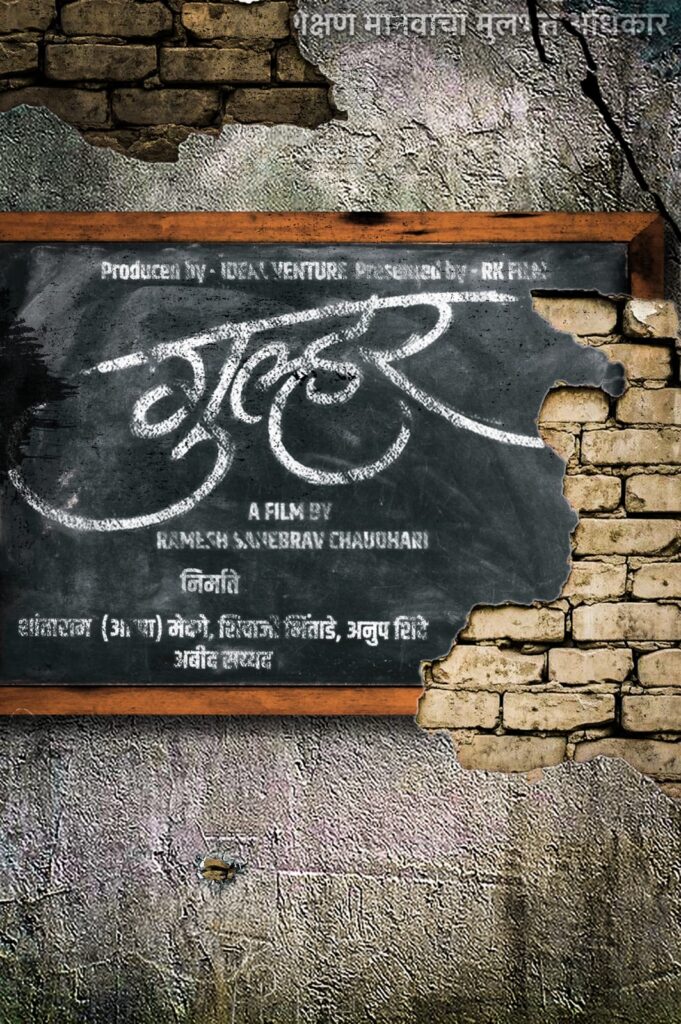 शिक्षण मानवाचा मुलभूत अधिकार
Produced by - IDEAL VENTURE Presented by - RK FILM
गुल्हर
A FILM BY
RAMESH SAHEBRAV CHAUDHARI
निर्माते
शांताराम (आप्पा) मेदगे, शिवाजी भिंताडे, अनुप शिंदे
अबीद सय्यद